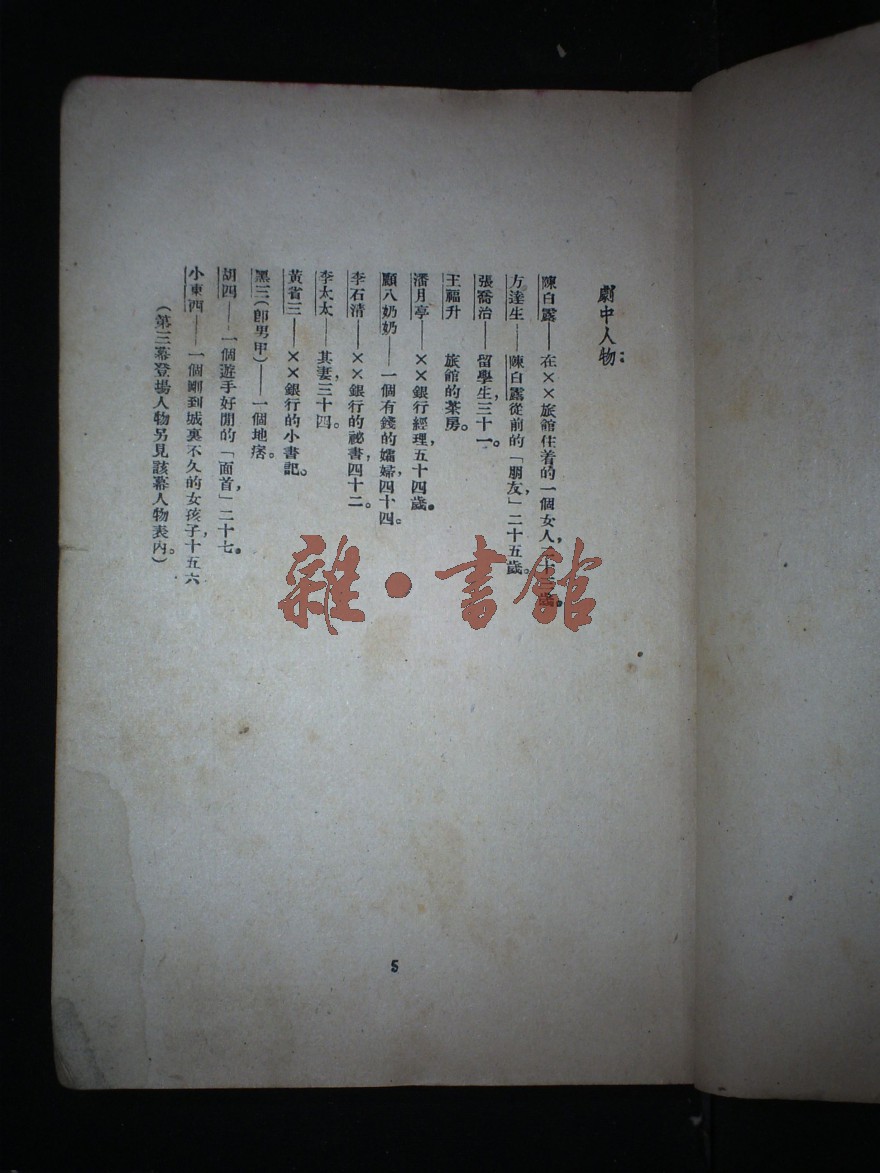 劇中人物：
陳白露——在××旅館住着的一個女人，二十三歲。
方達生——陳白露從前的「朋友」，二十五歲。
張喬治——留學生，三十一。
王福升　旅館的茶房。
潘月亭——××銀行經理，五十四歲。
顧八奶奶——一個有錢的孀婦，四十四。
李石清——××銀行的祕書，四十二。
李太太——其妻，三十四。
黃省三——××銀行的小書記。
黑三（卽男甲）——一個地痞。
胡四——一個遊手好閒的「面首」，二十七。
小東西——一個剛到城裏不久的女孩子，十五六
（第三幕登場人物另見該幕人物表內。）
5
雜·書館